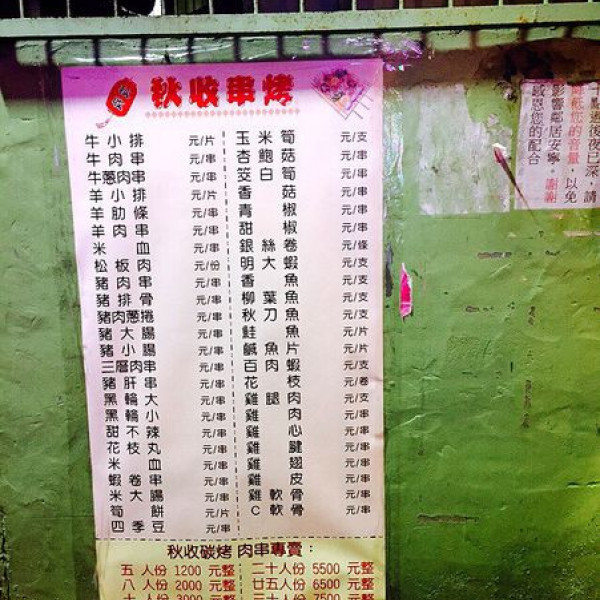 秋收串烤
牛小排 元/片
牛肉串 元/串
牛蔥肉串 元/串
羊小排 元/片
羊肋條 元/串
羊肉串 元/串
米血 元/串
松板肉 元/份
豬肉串 元/串
豬排骨 元/串
豬肉蔥捲 元/串
豬大腸 元/串
豬小腸 元/串
三層肉串 元/串
豬肝串 元/串
黑輪大 元/串
黑輪小 元/串
甜不辣 元/串
花枝丸 元/串
米血 元/串
蝦卷串 元/串
米大腸 元/串
筍餅 元/片
四季豆 元/串
玉米筍 元/支
杏鮑菇 元/串
筊白筍 元/串
香菇 元/串
青椒 元/串
甜椒 元/串
銀絲卷 元/條
明大蝦 元/支
香魚 元/支
柳葉魚 元/支
秋刀魚 元/支
鮭魚 元/片
鹹魚片 元/片
百肉蝦 元/支
花枝 元/卷
雞腿肉 元/支
雞肉 元/串
雞心 元/串
雞腱 元/串
雞翅 元/串
雞皮 元/串
雞軟骨 元/串
C軟骨 元/串
秋收碳烤 肉串專賣：
五人份 1200 元整
八人份 2000 元整
十人份 3000 元整
二十人份 5500 元整
廿五人份 6500 元整
三十人份 7500 元整
十點過後夜已深，請
降低您的音量，以免
影響鄰居安寧。謝謝
感恩您的配合